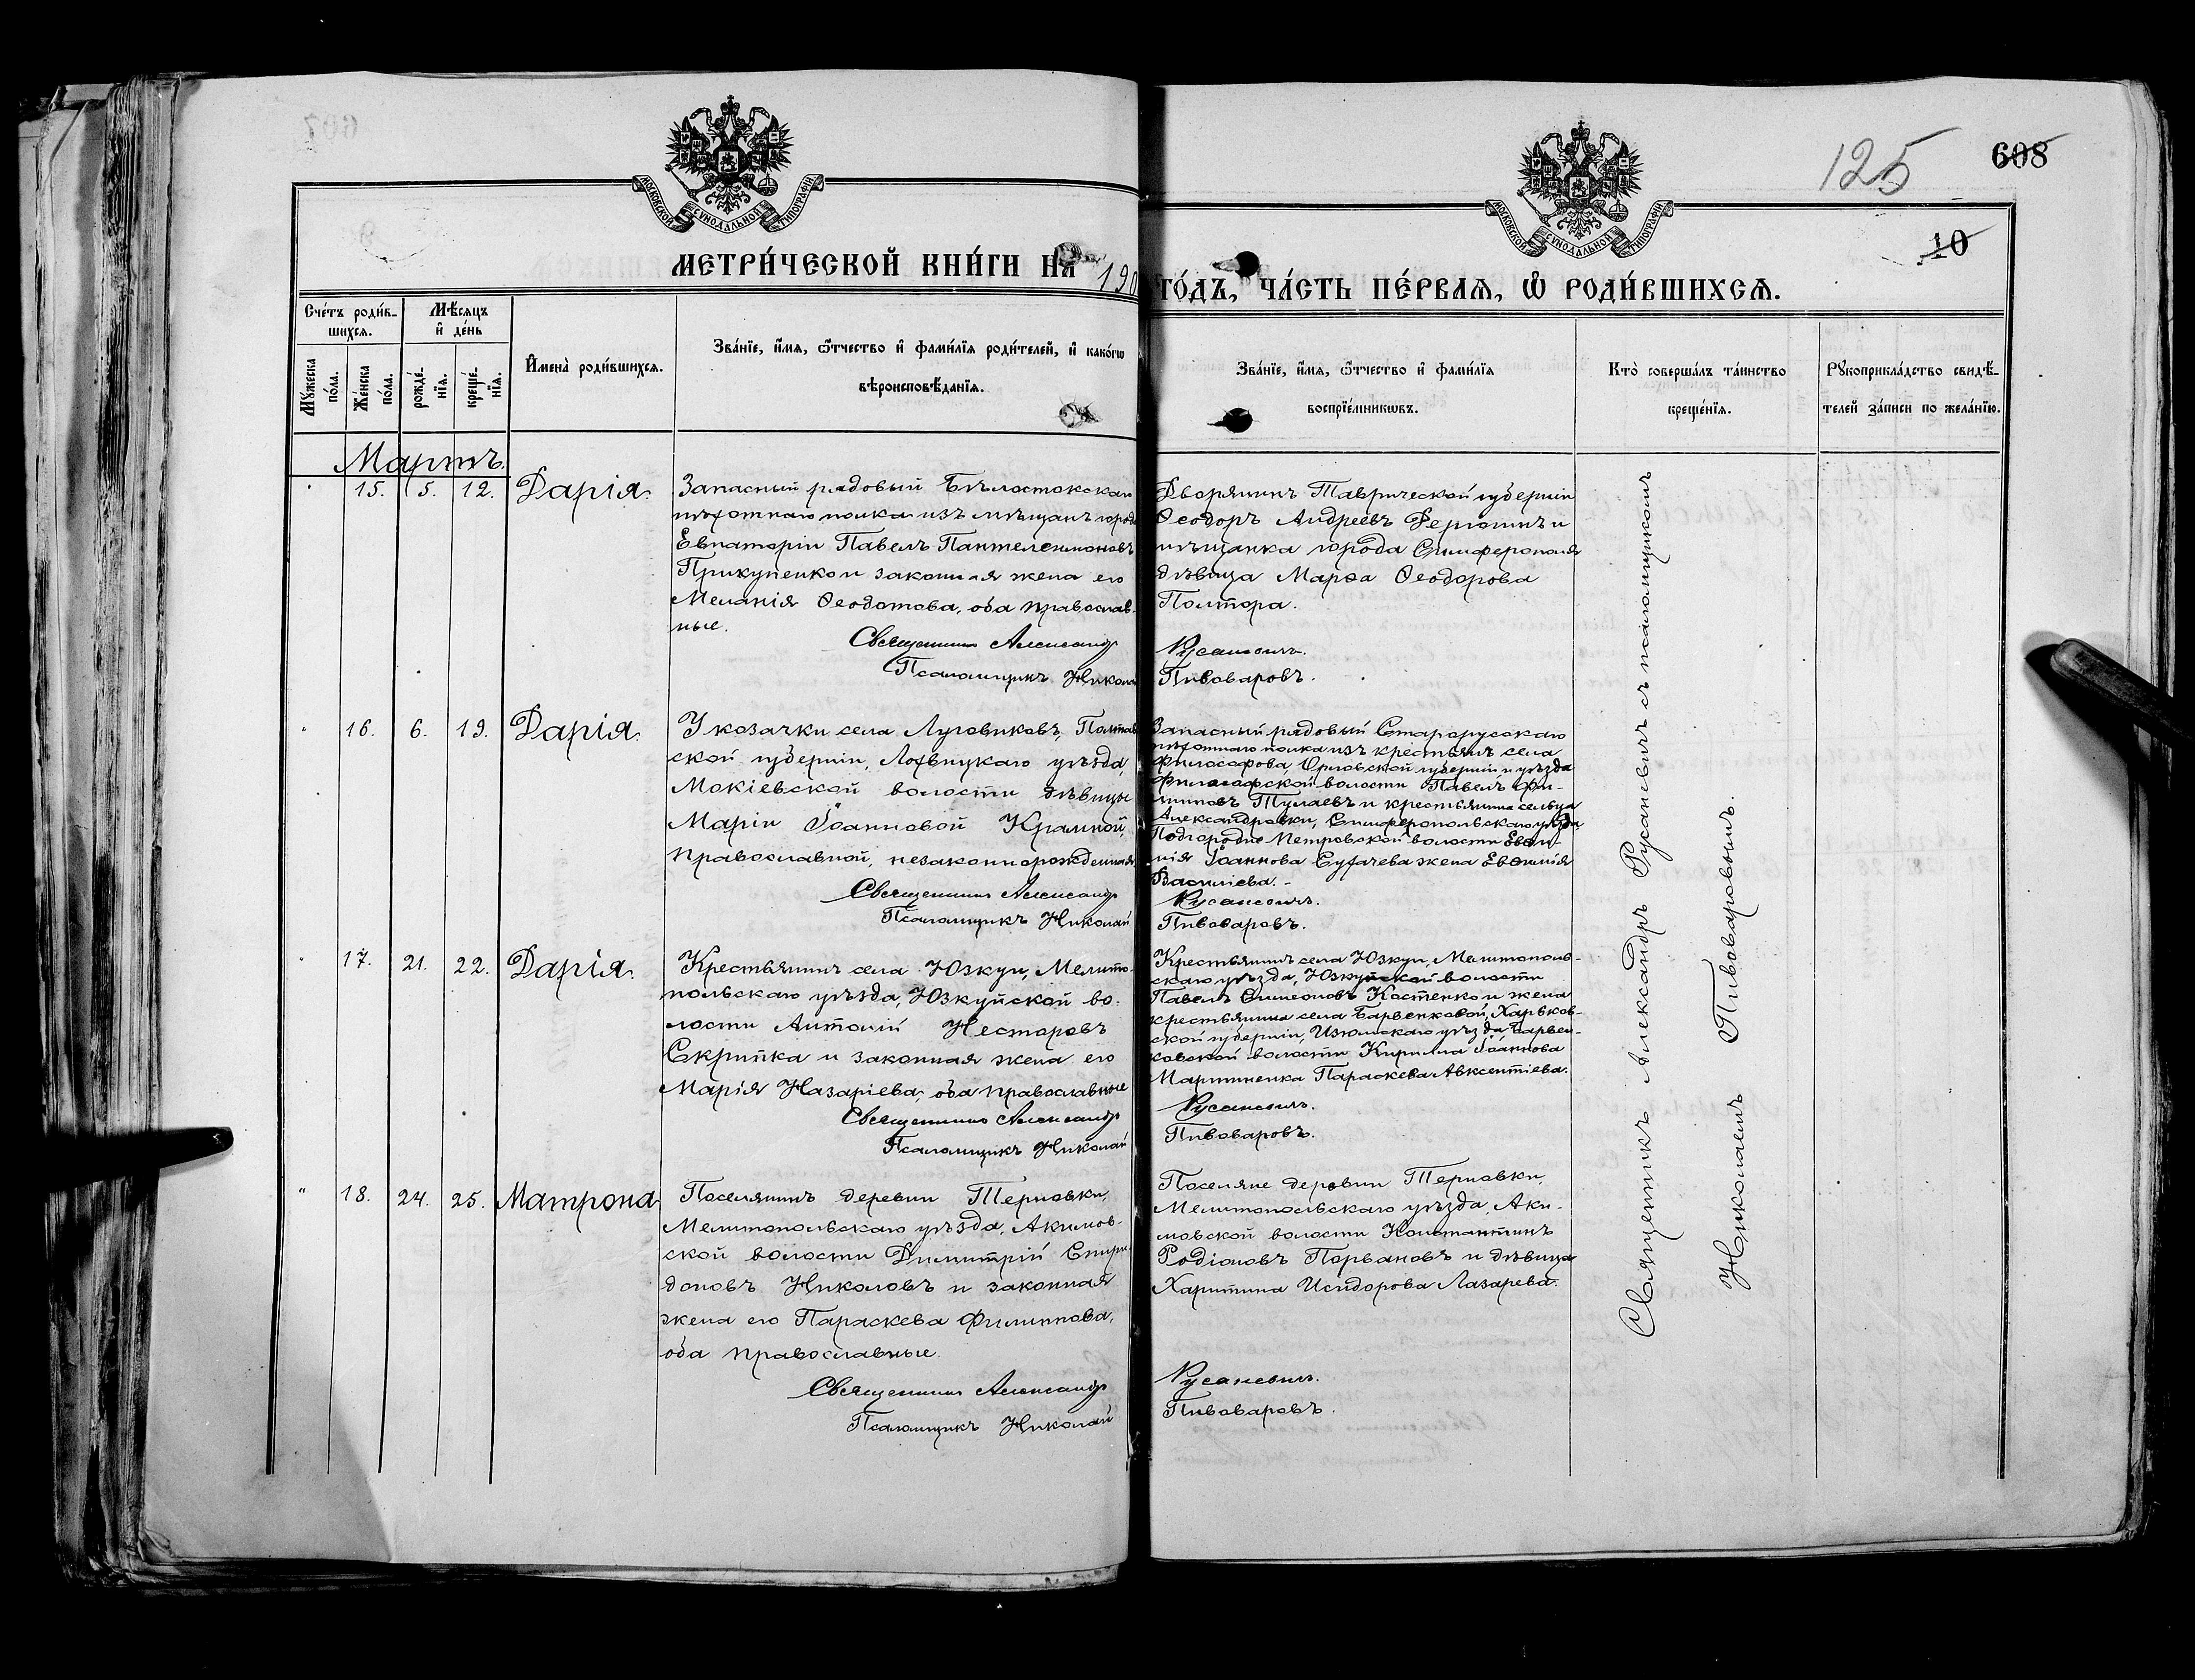 125
608
10
МОСКОВСКОЙ СѴНОДАЛЬНОЙ ТИПОГРАФІИ
МОСКОВСКОЙ СѴНОДАЛЬНОЙ ТИПОГРАФІИ
МЕТРИ́ЧЕСКОЙ КНИ́ГИ НА 190
ГО́ДЪ, ЧА́СТЬ ПЕ́РВАѦ, Ѡ҆ РОДИ́ВШИХСѦ.
Сче́тъ роди́в-
шихсѧ.
Мѣ́сѧцъ
и҆ де́нь
Мꙋ́жеска по́ла.
Же́нска по́ла.
рожде́-нїѧ.
креще́-нїѧ.
И҆мена̀ роди́вшихсѧ.
Зва́нїе, и҆́мѧ, ѻ҆́тчество и҆ фами́лїѧ роди́телей, и҆ како́гѡ
вѣроисповѣ́данїѧ.
Зва́нїе, и҆́мѧ, ѻ҆́тчество и҆ фами́лїѧ
воспрїе́мникѡвъ.
Кто̀ соверша́лъ та́инство
креще́нїѧ.
Рꙋкоприкла́дство свидѣ́-
телей за́писи по жела́нїю.
Мартъ.
15. 5. 12. Дарія.
Запасный рядовый Бѣлостокскаго
пѣхотнаго полка изъ мѣщанъ города
Евпаторіи Павелъ Пантелеимоновъ
Прикупенко и законная жена его
Меланія Ѳеодотова, оба православ-
ные.
Священникъ Александръ
Псаломщикъ Николай
Дворянинъ Таврической губерніи
Ѳеодоръ Андреевъ и
мѣщанка города Симферополя
дѣвица Марѳа Ѳеодорова
Полтора.
Русаневичъ.
Пивоваровъ.
16. 6. 19. Дарія.
У козачки села Луговиковъ, Полтав
ской губерніи, Лохвицкаго уѣзда,
Мокіевской волости дѣвицы
Маріи Іоанновой Крамной,
православной, незаконнорожденная
Священникъ Александръ
Псаломщикъ Николай
Запасный рядовый Старорусскаго
пѣхотнаго полка изъ крестьянъ села
Философова, Орловской губерніи и уѣзда
Философской волости Павелъ Фи-
липповъ Тулаевъ и крестьянина сельца
Александровки, Симферопольскаго уѣзда
Подгородне Петровской волости Евѳи-
мія Іоаннова Сухачева жена Евѳимія
Василіева.-
Русаневичъ.
Пивоваровъ.
17. 21. 22. Дарія.
Крестьянинъ села Юзкуи, Мелито-
польскаго уѣзда, Юзкуйской во-
лости Антоній Несторовъ
Скрипка и законная жена его
Марія Назаріева, оба православные
Священникъ Александръ
Псаломщикъ Николай
Крестьянинъ села Юзкуи, Мелитополь-
скаго уѣзда, Юзкуйской волости
Павелъ Симеоновъ Костенко и жена
крестьянина села Барвенковой, Харьков-
ской губерніи, Изюмскаго уѣзда, Барвен-
ковской волости Кирилла Іоаннова
Мартыненка Параскева Авксентіева.
Русаневичъ.
Пивоваровъ.
18. 24. 25. Матрона
Поселянинъ деревни Терновки,
Мелитопольскаго уѣзда, Акимов-
ской волости Димитрій Спири-
доновъ Николовъ и законная
жена его Параскева Филиппова,
оба православные.
Священникъ Александръ
Псаломщикъ Николай
Поселяне деревни Терновки,
Мелитопольскаго уѣзда, Аки-
мовской волости Константинъ
Родіоновъ Порвановъ и дѣвица
Харитина Исидорова Лазарева.
Русаневичъ.
Пивоваровъ.
Священникъ Александръ Русаневичъ съ псаломщикомъ
Николаемъ Пивоваровымъ.